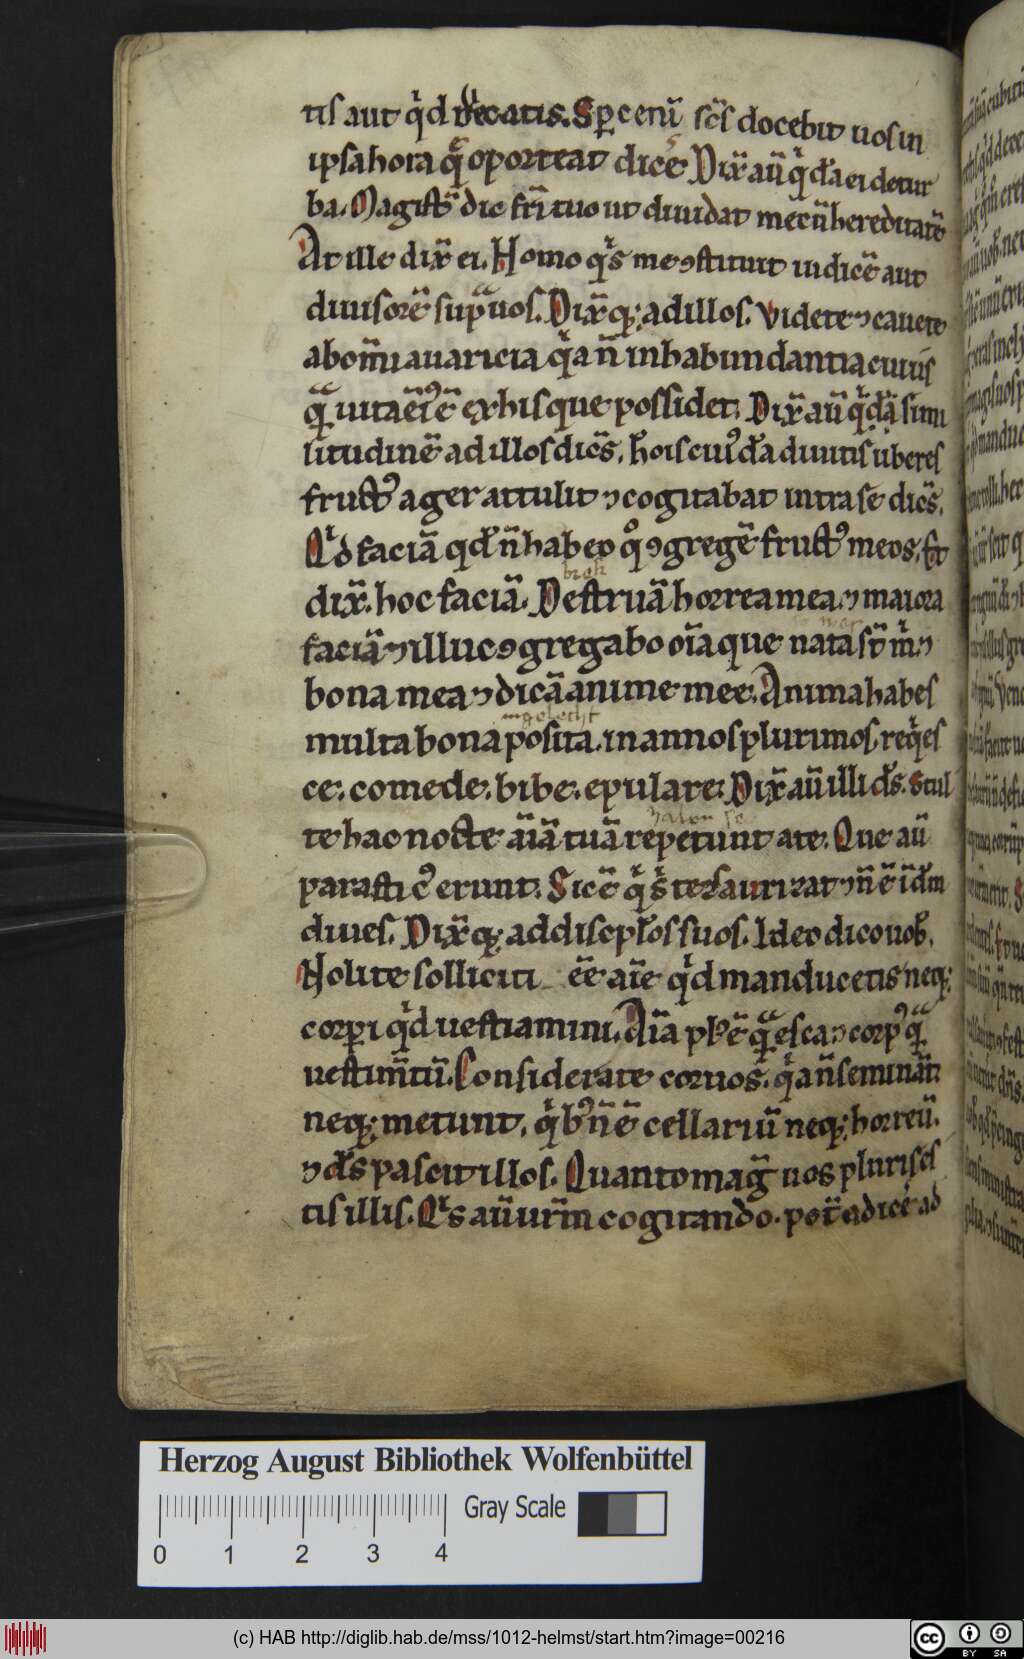 tis aut qͥd dicatis. Sp̄c eni̅ sc̅s docebit uos in
ipsa hora qᷓ oporteat dic̅e Dix̅ au̅ qͥdā ei de tur
ba. Magist̅ dic fr̅i tuo ut diuidat mecū hereditatē
At ille dix̅ ei. Homo qͥs me ꝯstituit iudicē aut
diuisorē supᷓ uos. Dix̅ qꝫ ad illos. Videte ⁊ cauete
ab om̅i auaricia qͥa n̅ in habundantia cuiuis
qᷓ uita ei᷒ ē ex his que possidet. Dix̅ au̅ qͥdā simi
litudinē ad illos dic̅s. hoi̅s cui᷒dā diuitis uberes
fruct᷒ ager attulit ⁊ cogitabat intra se dic̅s.
Qͥd faciā qđ n̅ habeo qͦ ꝯgregē fruct᷒ meos. Et
dix̅. hoc faciā. Destruā horrea mea ⁊ maiora
faciā ⁊ illuc ꝯgregabo oi̅a que nata st̅ m̅ ⁊
bona mea ⁊ dicā anime mee. Anima habes
multa bona posita. in annos plurimos reqͥes
ce. comede. bibe. epulare. Dix̅ au̅ illi ds̅. Stul
te hac nocte ai̅ā tuā repetunt a te. Que au̅
parasti c᷒ erunt. Sic ē qͥ sͥ tesaurizat ⁊ n̅ ē i̅ dm̅
diues. Dix̅ qꝫ ad discipl̅os suos. Ideo dico uob̅.
Nolite solliciti ee̅ ai̅e qͥd manducetis neqꝫ
corpi qͥd uestiamini. Ai̅a pl᷒ ē qᷓ esca ⁊ corp᷒ qᷓ
uestim̅tū. Considerate coruos. qͥa n̅ semināt
neqꝫ metunt. qͥb᷒ n̅ ē cellariū neqꝫ horreū.
⁊ ds̅ pascit illos. Quanto mag̅ uos pluris es
tis illis. Qͥs au̅ ur̅m cogitando. pot̅ adice̅ ad
Herzog August Bibliothek Wolfenbüttel
Gray Scale
0 1 2 3 4
(c) HAB http://diglib.hab.de/mss/1012-helmst/start.htm?image=00216
cc BY SA